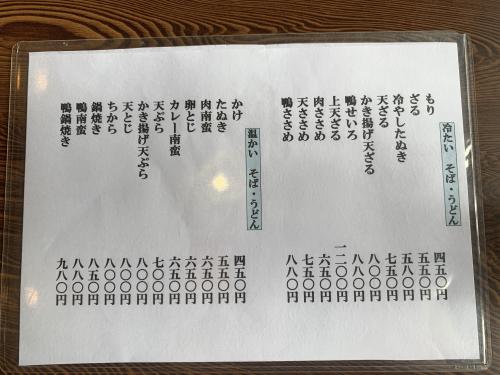 冷たい そば・うどん
もり 四五〇円
ざる 五五〇円
冷やしたぬき 五八〇円
天ざる 七五〇円
かき揚げ天ざる 八〇〇円
鴨せいろ 八八〇円
上天ざる 一二〇〇円
肉ささめ 六五〇円
天ささめ 七五〇円
鴨ささめ 八八〇円
温かい そば・うどん
かけ 四五〇円
たぬき 五五〇円
肉南蛮 六五〇円
卵とじ 六五〇円
カレー南蛮 六五〇円
天ぷら 七〇〇円
かき揚げ天ぷら 八〇〇円
天とじ 八〇〇円
ちから 八〇〇円
鍋焼き 八五〇円
鴨南蛮 八八〇円
鴨鍋焼き 九八〇円